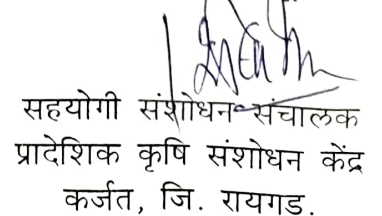 सहयोगी संशोधन संचालक
प्रादेशिक कृषि संशोधन केंद्र
कर्जत, जि. रायगड.